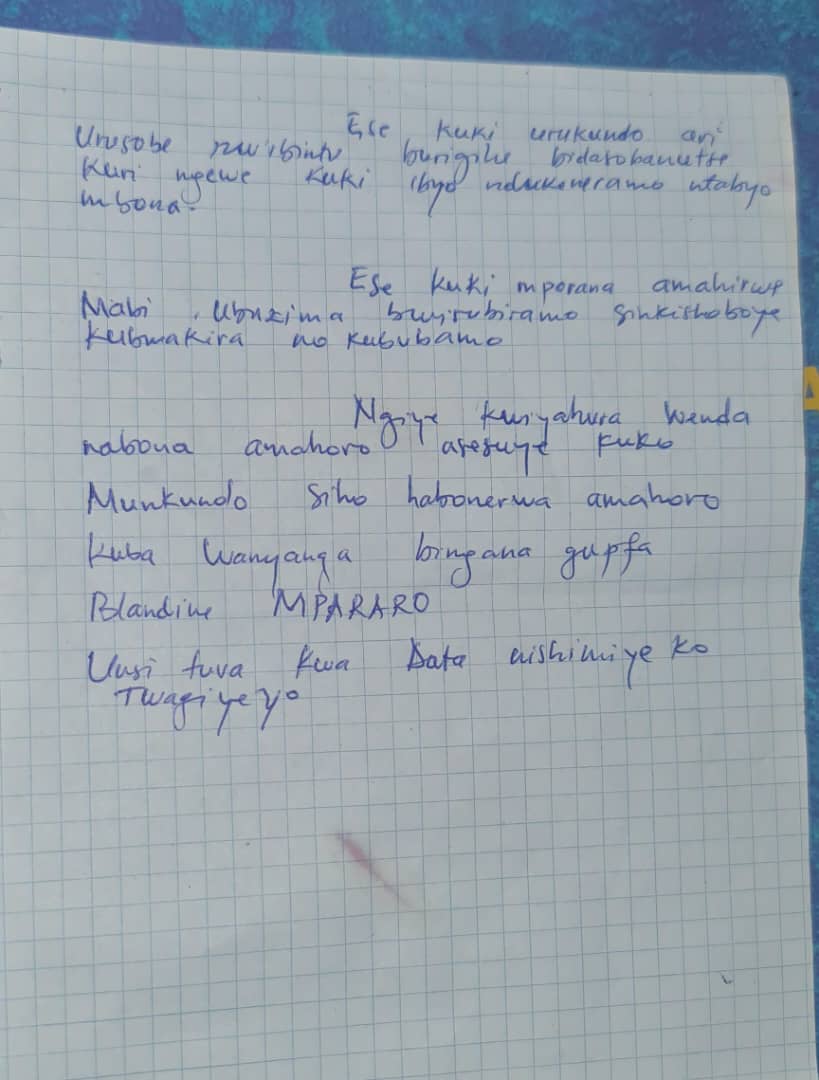 Ese kuki urukundo ari
Urusobe rw'ibintu burigihe bidasobanutse
Kuri ngewe kuki ibyo ndukeneramo ntabyo
mbona.
Ese kuki mporana amahirwe
Mabi, Ubuzima bwirubiramo sinkishoboye
kubwakira no kububamo
Ngiye kwiyahura wenda
nabona amahoro asesuye kuko
Munkundo siho habonerwa amahoro
Kuba Wanyanga bingana gupfa
Blandine MPARARO
Uusi tuva kwa Data nishimiye ko
Twagiyeyo